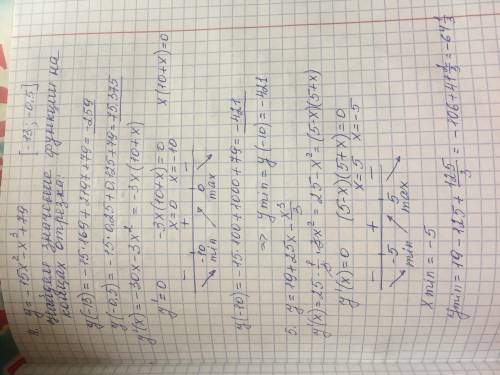 8. y = -15x² - x³ + 79 [-13; -0.5]
Найдём значение функции на
концах отрезка.
y(-13) = -15·169 + 2197 + 79 = -259
y(-0,5) = -15·0.25 + 0.125 + 79 = 75.375
y'(x) = -30x - 3x² = -3x(10+x)
y' = 0 -3x(10+x) = 0 x(10+x) = 0
x = 0 x = -10
- + -
-10 0
min max
y(-10) = -15·100 + 1000 + 79 = -421
⇒ y min = y(-10) = -421
5. y = 19 + 25x - x³/3
y'(x) = 25 - 1/3 · 3x² = 25 - x² = (5-x)(5+x)
y'(x) = 0 (5-x)(5+x) = 0
x = 5 x = -5
- + -
-5 5
min max
x min = -5
y min = 19 - 125 + 125/3 = -106 + 41 2/3 = -64 1/3